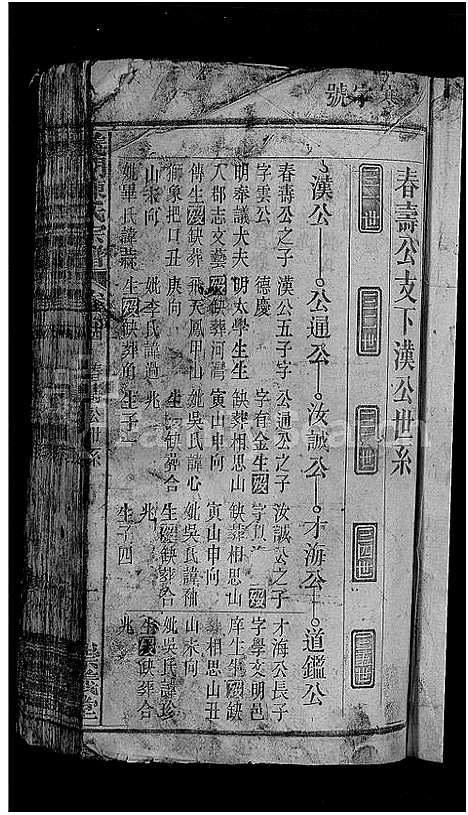 號
春壽公支下漢公世系
三一世
三二世
三三世
三四世
三五世
漢公
公通公
汝誠公
才海公
道鑑公
春壽公之子
字雲公
明奉議大夫
傳生歿缺葬
八郡志文藝
獅象把口丑
山未向
妣畢氏諱
漢公五子字
德慶
明太學生生
歿缺葬河灣
飛天鳳甲山
庚向
妣李氏諱過
生歿缺葬角
公通公之子
字有金生歿
缺葬相思山
寅山申向
妣吳氏諱心
生歿缺葬合
兆
生子一
汝誠公之子
字歿
缺葬相思山
寅山申向
妣吳氏諱秞
生歿缺葬合
兆
生子四
才海公長子
字學文明邑
庠生生歿缺
葬相思山丑
山未向
妣吳氏諱珍
生歿缺葬合
兆
陳氏宗譜
春壽公世系